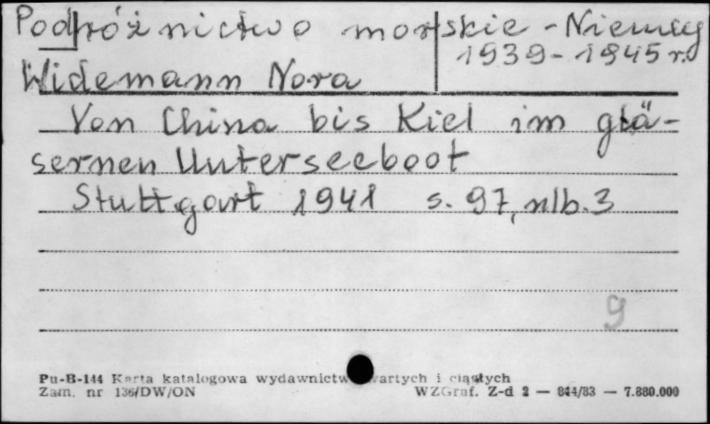 Podróżnictwo morskie - Niemcy
1939-1945 r.
Widemann Nora
Von China bis Kiel im glä-
sernen Unterseeboot
Stuttgart 1941 s. 97, nlb. 3
9
Pu-B-144 Karta katalogowa wydawnictw zwartych i ciągłych
Zam. nr 136/DW/ON WZGraf. Z-d 2 — 844/83 — 7.880.000